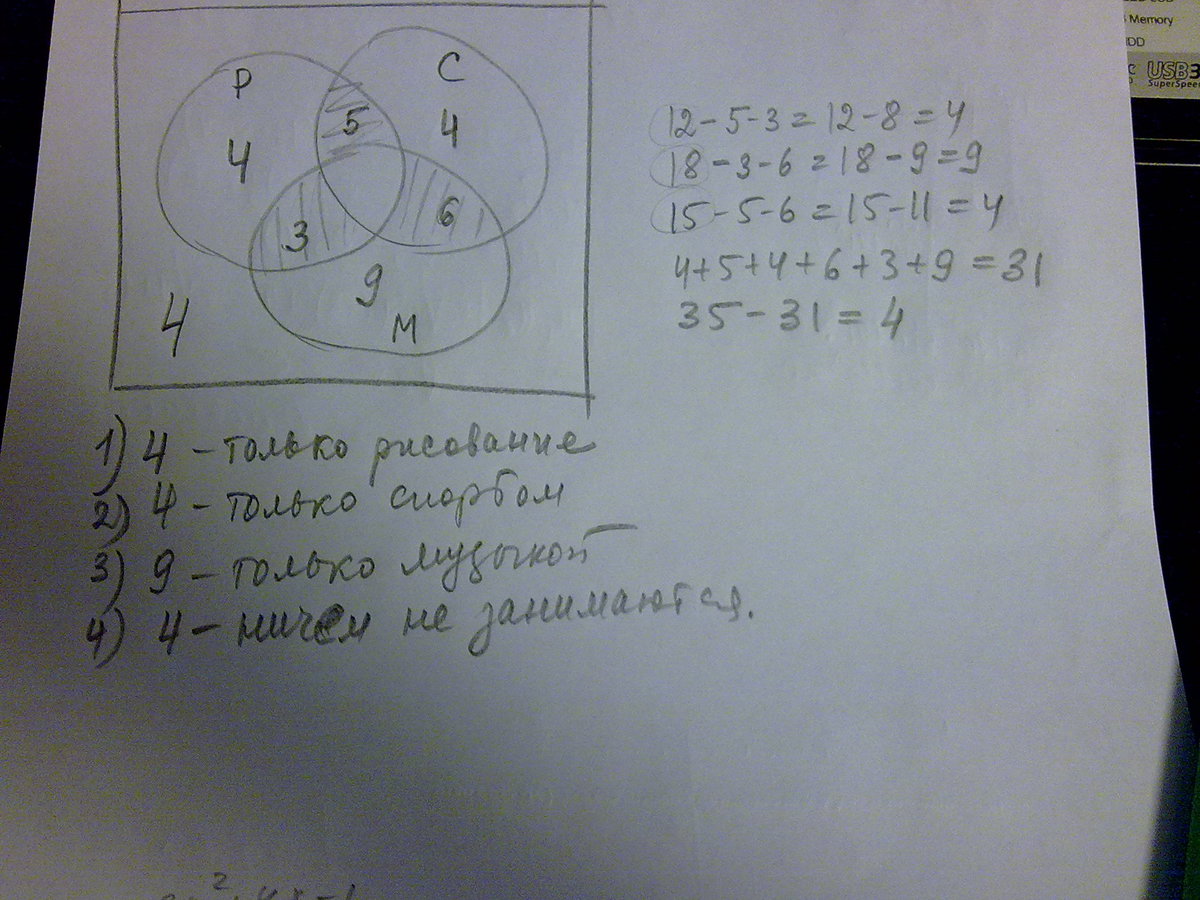 Р
С
5
4
4
3
6
9
М
4
12-5-3=12-8=4
18-3-6=18-9=9
15-5-6=15-11=4
4+5+4+6+3+9=31
35-31=4
1) 4 - только рисование
2) 4 - только спортом
3) 9 - только музыкой
4) 4 - ничем не занимаются.
Memory
USB3
SuperSpeed